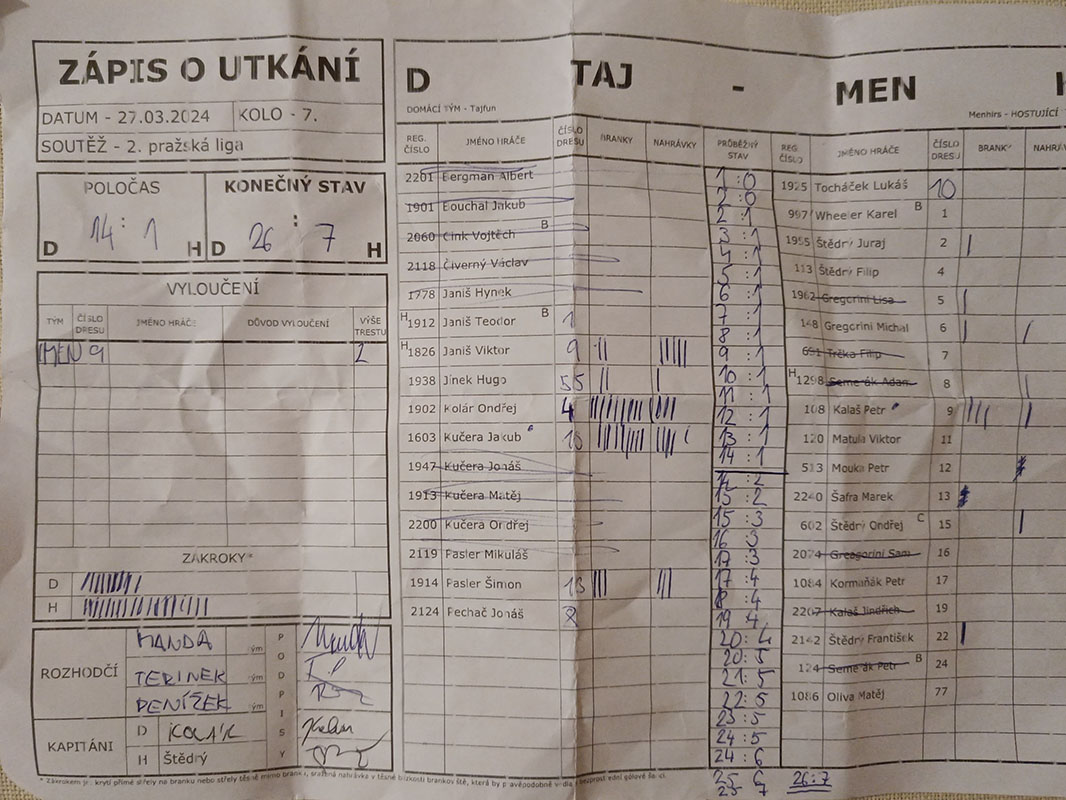 ZÁPIS O UTKÁNÍ
DATUM - 27.03.2024 KOLO - 7.
SOUTĚŽ - 2. pražská liga
POLOČAS KONEČNÝ STAV
D 14 : 1 H D 26 : 7 H
VYLOUČENÍ
TÝM ČÍSLO DRESU JMÉNO HRÁČE DŮVOD VYLOUČENÍ VÝŠE TRESTU
MEN 9 2
ZÁKROKY*
D
H
ROZHODČÍ
MANDA ým
TERINEK ým
PENÍZEK ým
PODPISY
KAPITÁNI
D
H Štědrý
D TAJ - MEN
DOMÁCÍ TÝM - Tajfun Menhirs - HOSTUJÍCÍ
REG. ČÍSLO JMÉNO HRÁČE ČÍSLO DRESU BRANKY NAHRÁVKY PRŮBĚŽNÝ STAV REG. ČÍSLO JMÉNO HRÁČE ČÍSLO DRESU BRANKY
2201 Bergman Albert
1901 Bouchal Jakub
2060 Cink Vojtěch B
2118 Čiverný Václav
1778 Janiš Hynek
H 1912 Janiš Teodor B 1
H 1826 Janiš Viktor 9
1938 Jínek Hugo 55
1902 Kolár Ondřej 4
1603 Kučera Jakub
1947 Kučera Jonáš
1913 Kučera Matěj
2200 Kučera Ondřej
2119 Pasler Mikuláš
1914 Pasler Šimon 13
2124 Pechač Jonáš
1:0
2:0
2:1
3:1
4:1
5:1
6:1
7:1
8:1
9:1
10:1
11:1
12:1
13:1
14:1
14:2
15:2
15:3
16:3
17:3
17:4
8:4
19:4
20:4
20:5
21:5
22:5
23:5
24:5
24:6
25 6
25 7
26:7
1925 Tocháček Lukáš 10
997 Wheeler Karel B 1
1955 Štědrý Juraj 2
113 Štědrý Filip 4
1962 Gregorini Lisa 5
148 Gregorini Michal 6
651 Trčka Filip 7
H 1298 Semerák Adam 8
108 Kalaš Petr 9
120 Matula Viktor 11
513 Mouka Petr 12
2240 Šafra Marek 13
602 Štědrý Ondřej C 15
2074 Greegorini Sam 16
1084 Kormaňák Petr 17
2207 Kalaš Jindřich 19
2142 Štědrý František 22
124 Semerák Petr B 24
1086 Oliva Matěj 77